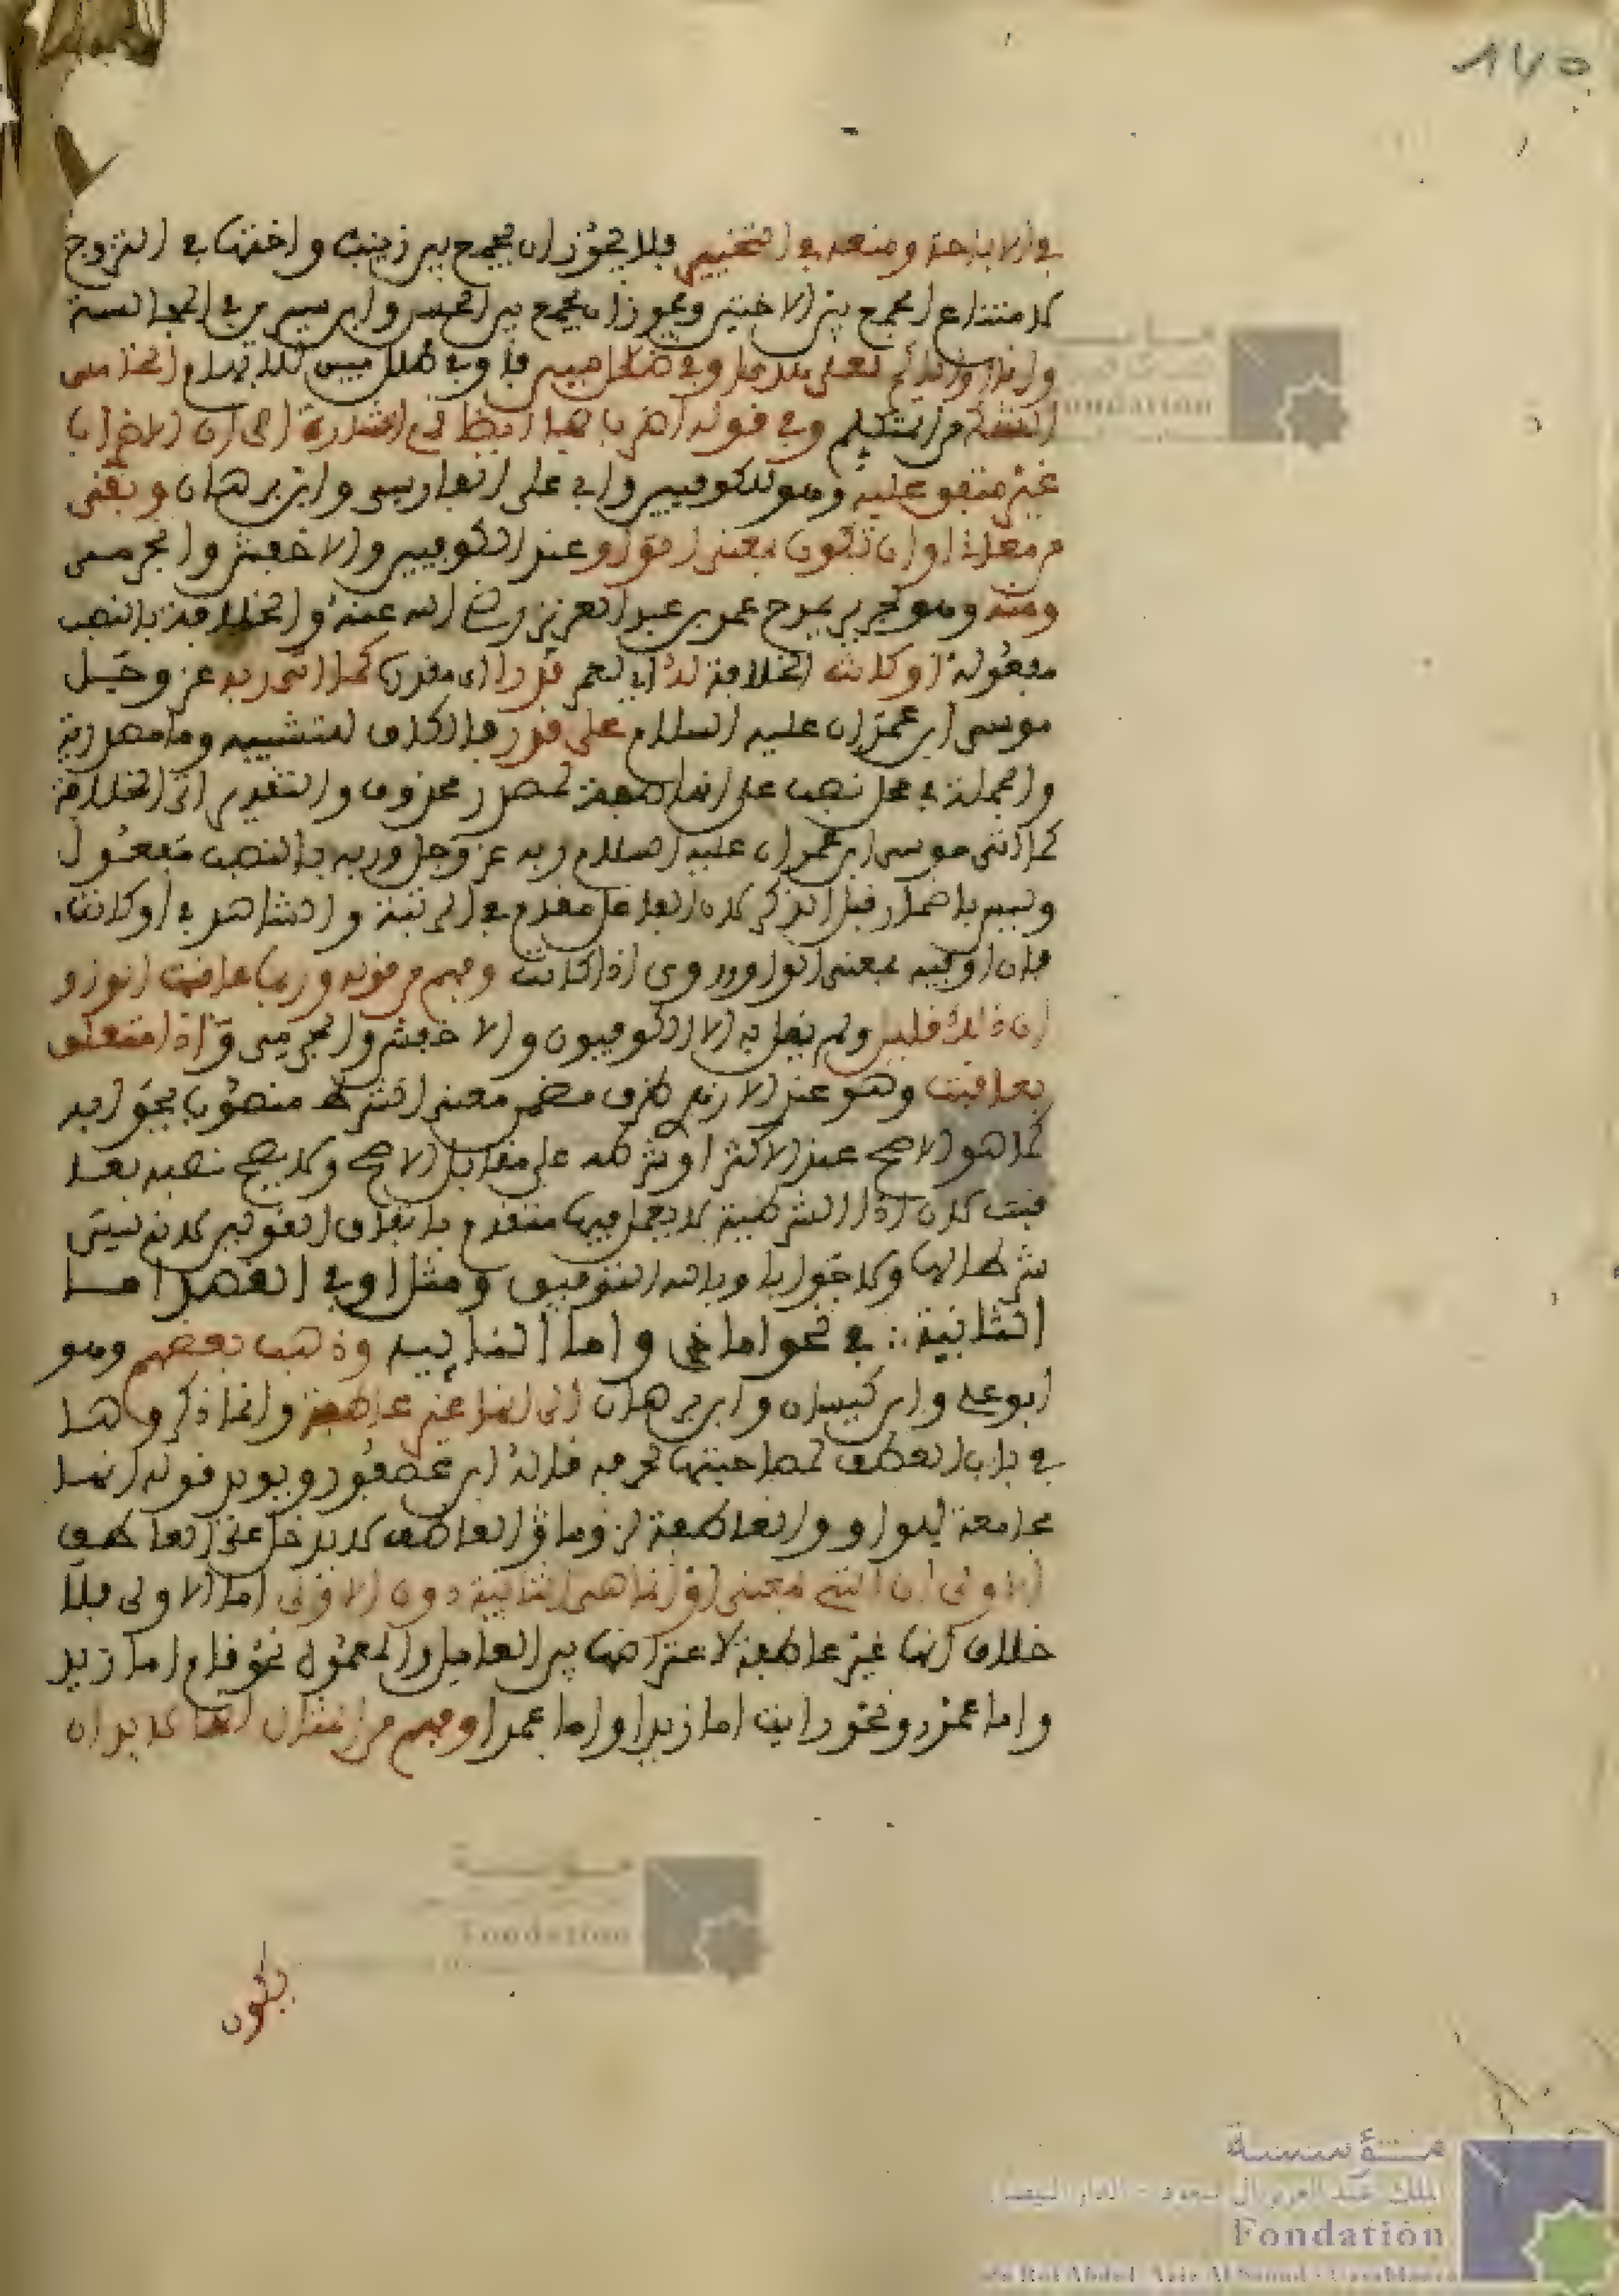 ١٧٥
في الاباحة ومنعه في التخيير فلا يجوز ان يجمع بين زينب واختها في التزوج
لامتناع الجمع بين الاختين ويجوز ان يجمع بين الحسن وابن سيرين في المجالسة
وانا او اياكم لعلى هدى او في ضلال مبين فاو في ضلال مبين للابهام الخامس
الشك من المتكلم وفي قوله اضربا هنا ايضا اشارة الى ان الاضراب
غير متفق عليه وهو للكوفيين وابي علي الفارسي وابن برهان وبقى
من معاني او ان تكون بمعنى الواو عند الكوفيين والاخفش والجرمي
ومنه وهو لجرير يمدح عمر بن عبد العزيز رضي الله عنه والخلافة بالنصب
مفعوله او كانت الخلافة له اي لعمر قدرا اي مقدرة كما اتى ربه عز وجل
موسى ابن عمران عليه السلام على قدر فالكاف للتشبيه وما مصدرية
والجملة في محل نصب على انها صفة لمصدر محذوف والتقدير اتى الخلافة
كما اتى موسى ابن عمران عليه السلام ربه عز وجل وربه بالنصب مفعول
وليس باضمار قبل الذكر لان الفاعل مقدم في الرتبة والشاهد في او كانت
فان او فيه بمعنى الواو وروى اذ كانت وفهم من قوله وربما عاقبت الواو
ان ذلك قليل ولم يقل به الا الكوفيون والاخفش والجرمي واذا متعلق
بعاقبت وهو عند الاكثر ظرف مضمن معنى الشرط منصوب بجوابه
كما هو الاصح عند الاكثر او بشرطه على مقابل الاصح ولا يصح نصبه بعا
قبت لان اذا الشرطية لا يعمل فيها متقدم باتفاق القولين لانه ليس
شرطا لها ولا جوابا وبالله التوفيق ومثل او في القصد اما
الثانية في نحو اما ذي واما النائيه وذهب بعضهم وهو
ابو علي وابن كيسان وابن برهان الى انها غير عاطفة وانما ذكروها
في باب العطف لمصاحبتها لحرفه قاله ابن عصفور ويويد قوله انها
مجامعة للواو والعاطفة لزوما والعاطف لا يدخل على العاطف
الاولى ان اتت بمعنى او انما هي الثانية دون الاولى اما الاولى فلا
خلاف انها غير عاطفة لاعتراضها بين العامل والمعمول نحو قام اما زيد
واما عمرو ونحو رايت اما زيدا واما عمرا وفهم من المثال انها لا بد ان
يكون
مؤسسة
الملك عبد العزيز آل سعود - الدار البيضاء
Fondation
du Roi Abdul-Aziz Al Saoud - Casablanca